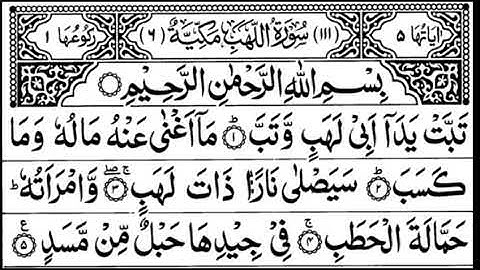 اٰیَاتُهَا ٥ (١١١) سُوْرَةُ اللَّهَبِ مَكِّيَّةٌ (٦) رُكُوْعُهَا ١
بِسْمِ اللهِ الرَّحْمٰنِ الرَّحِيْمِ
تَبَّتْ يَدَاۤ اَبِيْ لَهَبٍ وَّتَبَّ ؕ‏ ١ مَاۤ اَغْنٰى عَنْهُ مَالُهٗ وَمَا
كَسَبَ ؕ‏ ٢ سَيَصْلٰى نَارًا ذَاتَ لَهَبٍ ۚ ۖ ٣ وَّامْرَاَتُهٗ ؕ
حَمَّالَةَ الْحَطَبِ ۚ ٤ فِيْ جِيْدِهَا حَبْلٌ مِّنْ مَّسَدٍ ٥ ع